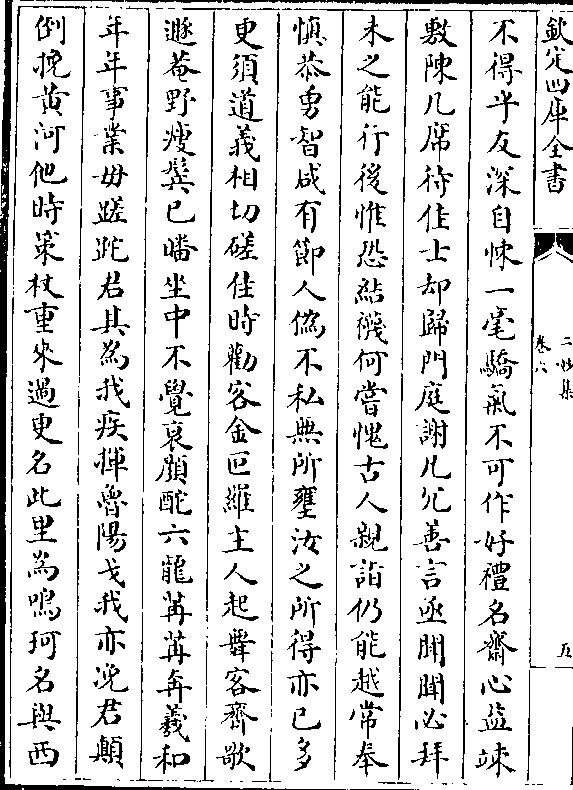 欽定四庫全書
二妙集
卷六
五
不得乎友深自悚一毫驕氣不可作好禮名齋心益竦
敷陳几席待佳士却歸門庭謝凡冗善言亟聞聞必拜
未之能行後惟恐結襪何嘗愧古人親詣仍能越常奉
慎恭勇智咸有節人偽不私無所壅汝之所得亦已多
更須道義相切磋佳時勸客金叵羅主人起舞客齊歌
遯菴野瘦鬢已皤坐中不覺衰顔酡六龍苒苒奔羲和
年年事業毋蹉跎君其為我疾揮魯陽戈我亦浼君顛
倒挽黄河他時策杖重來過更名此里為鳴珂名與西